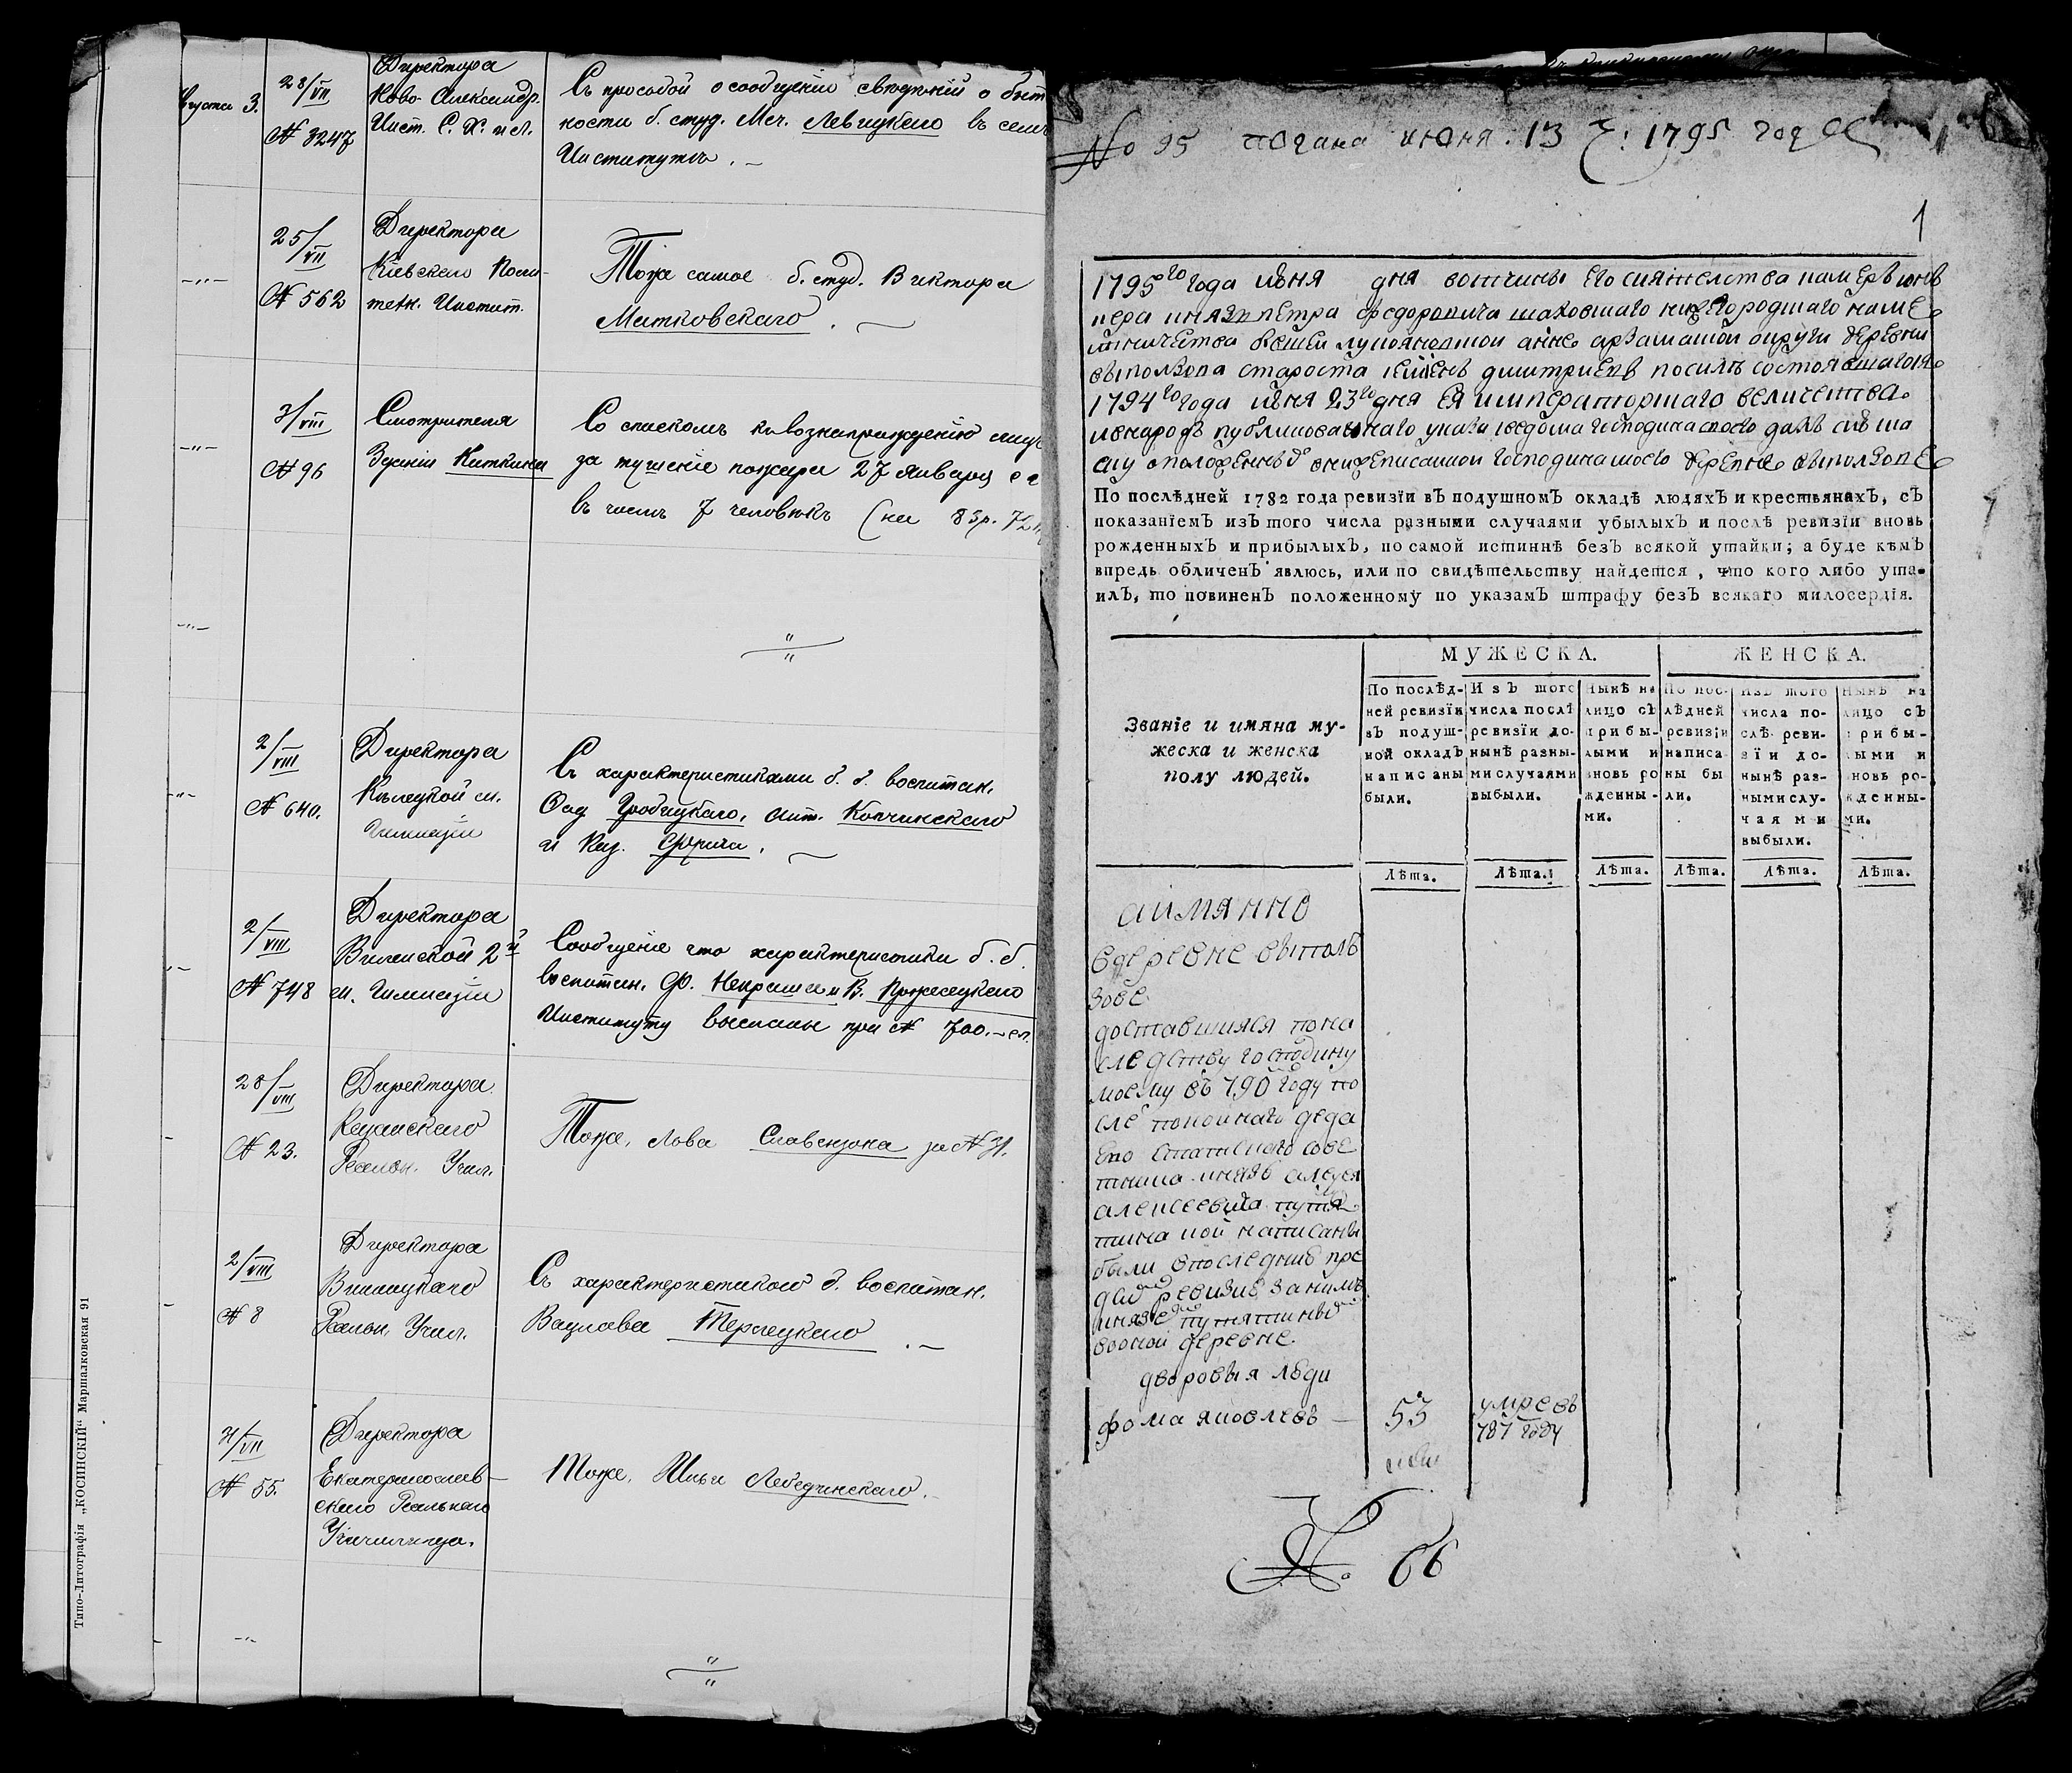 28/VII
№ 3247
Директора
Ново-Александр.
Инст. С. Х. и Л.
Съ просьбой о сообщеніи свѣдѣній о быт
ности б. студ. Меч. Левицкаго въ семъ
Институтѣ.
25/VII
№ 562
Директора
Кіевскаго Поли-
техн. Инстит.
Тоже самое б. студ. Виктора
Митковскаго.
3/VIII
№ 96
Смотрителя
Зданія Киткина
Со спискомъ къ вознагражденію лицъ
за тушеніе пожара 27 Января с г
въ числѣ 7 человѣкъ (на 83р. 72к
2/VIII
№ 640.
Директора
Кѣлецкой м.
Гимназіи
Съ характеристиками б. б. воспитан.
Ант. Копчинскаго
и Каз.
2/VIII
№ 748
Директора
Виленской 2й
м. Гимназіи
Сообщеніе что характеристики б. б.
воспитан. Ф. Некраша и В.
Институту высланы при № 700.
28/VIII
№ 23.
Директора
Казанскаго
Реальн. Учил.
Тоже, Лова Славензона за № 31.
2/VIII
№ 8
Директора
Винницкаго
Реальн. Учил.
Съ характеристикой б. воспитан.
Вацлава Терлецкаго
31/VII
№ 55.
Директора
Екатеринослав-
скаго Реальнаго
Училища.
Тоже, Ильи Лебединскаго.
Типо-Литографія „КОСИНСКІЙ“ Маршалковская 91
No 95 подана июня 13 ч: 1795 году
1
1795го года июня дня вотчины его сиятелства камер юнк
кера князь петра федоровича шаховскаго нижегородскаго наме
стничества арзамаской округи деревни
выползова староста семенъ дмитриевъ посилѣ состоявшагося
1794го года июня 23го дня ея императорскаго величества
ивнародъ публикованнаго указа господина своего далъ сию ска
ску оположенныхъ внижеписанной господина моего деревне выползове
По послѣдней 1782 года ревизїи въ подушномъ окладѣ людяхъ и крестьянахъ, съ
показанїемъ изъ того числа разными случаями убылыхъ и послѣ ревизїи вновь
рожденныхъ и прибылыхъ, по самой истиннѣ безъ всякой утайки; а буде кѣмъ
впредь обличенъ явлюсь, или по свидѣтельству найдется, что кого либо ута-
илъ, то повиненъ положенному по указамъ штрафу безъ всякаго милосердїя.
МУЖЕСКА.
ЖЕНСКА.
Званїе и имяна му-
жеска и женска
полу людей.
По послѣд-
ней ревизїи
въ подуш-
ной окладъ
написаны
были.
Изъ того
числа послѣ
ревизїи до-
нынѣ разны-
ми случаями
выбыли.
Нынѣ на
лицо съ
прибы-
лыми и
вновь ро
жденны-
ми.
По пос-
лѣдней
ревизїи
написа-
ны бы
ли.
Изъ того
числа по-
слѣ реви-
зїи до-
нынѣ раз-
ными слу-
чаями
выбыли.
Нынѣ на
лицо съ
прибы-
лыми и
вновь ро-
жденны-
ми.
Лѣта.
Лѣта.
Лѣта.
Лѣта.
Лѣта.
Лѣта.
аимянно
вдеревне выпол
зове
доставшияся пона
следству господину
моему въ 790 году по
сле покойнаго деда
ево статскаго сове
тника князь алексея
алексеевича путя
тина кой написаны
были впоследнию пре
дъ ревизию за нимъ
княземъ путятинымъ
воной деревне.
дворовыя люди
фома яковлевъ —
53
умре въ
787 году
№. 66